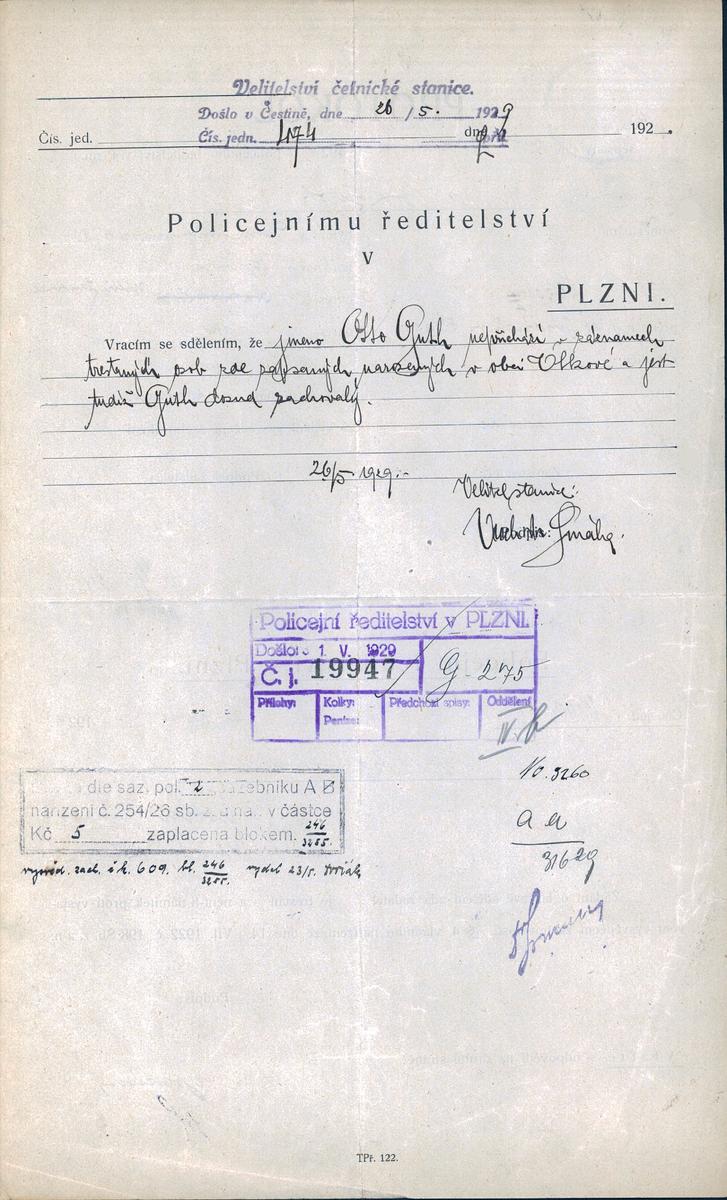 Velitelství četnické stanice.
Došlo v Čestině, dne 26 / 5. 1929
Čís. jed. Čís. jedn. 474 dne 192 .
Policejnímu ředitelství
v
PLZNI.
Vracím se sdělením, že jméno Otto Guth nepřichází v záznamech
trestaných osob zde zapsaných, narozených v obci Olškové a jest
tudíž Guth dosud zachovalý.
26/5 1929.-
Velitel stanice:
Vrchstrážm: Smaha.
Policejní ředitelství v PLZNI.
Došlo: 1. V. 1929
Č. j. 19947 G - 275
Přílohy: Kolky: Předchozí spisy: Oddělení
Peníze:
IV. b
No. 3260
dle saz. pol. 2 sazebníku A B
nařízení č. 254/26 sb. z. a nař. v částce
Kč 5 zaplacena blokem. 246/3255.
a a
31629
vysvěd. zach. i k. 609. bl. 246/3255. vydal 23/5.
TPř. 122.